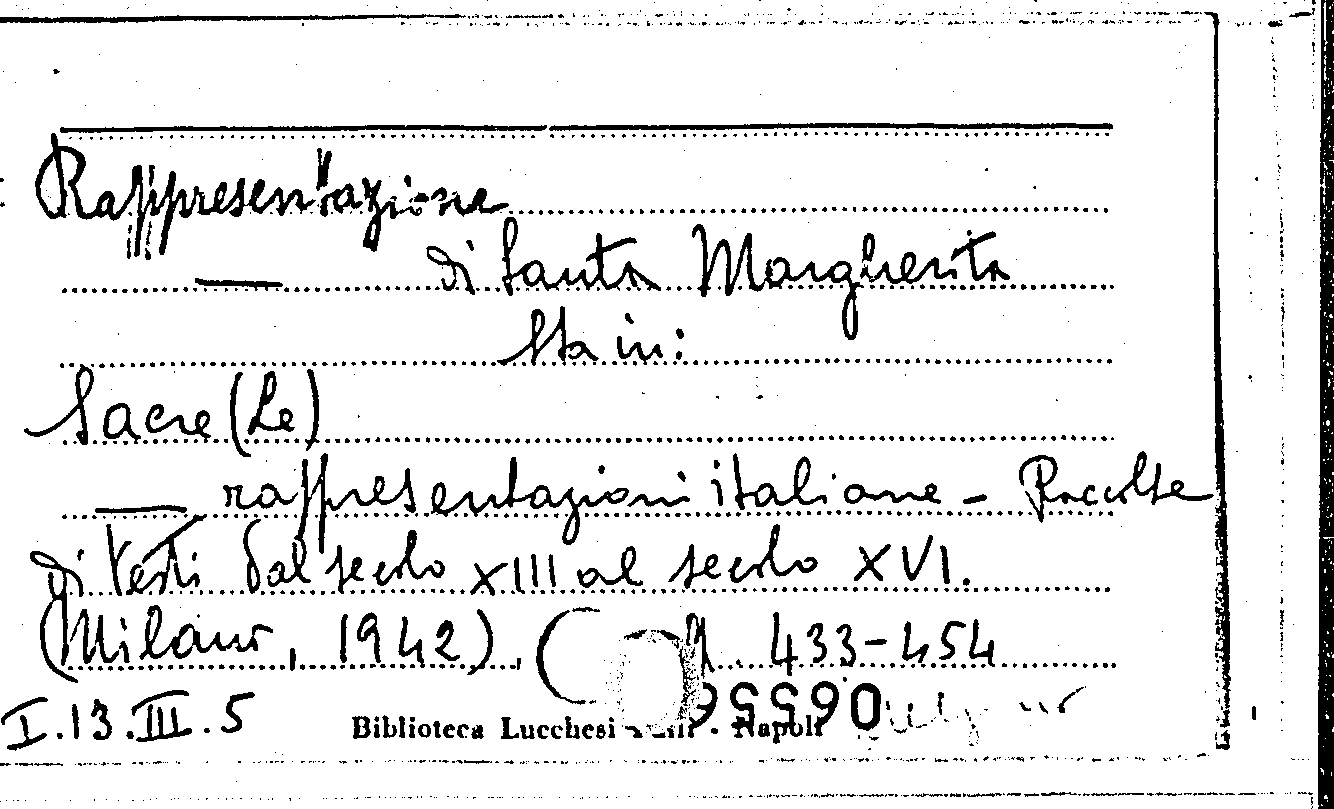 Rappresentazione
— di Santa Margherita
Sta in:
Sacre (Le)
— rappresentazioni italiane - Raccolte
di testi dal secolo XIII al secolo XVI.
(Milano, 1942), 433-454
I.13.III.5
Biblioteca Lucchesi - Napoli